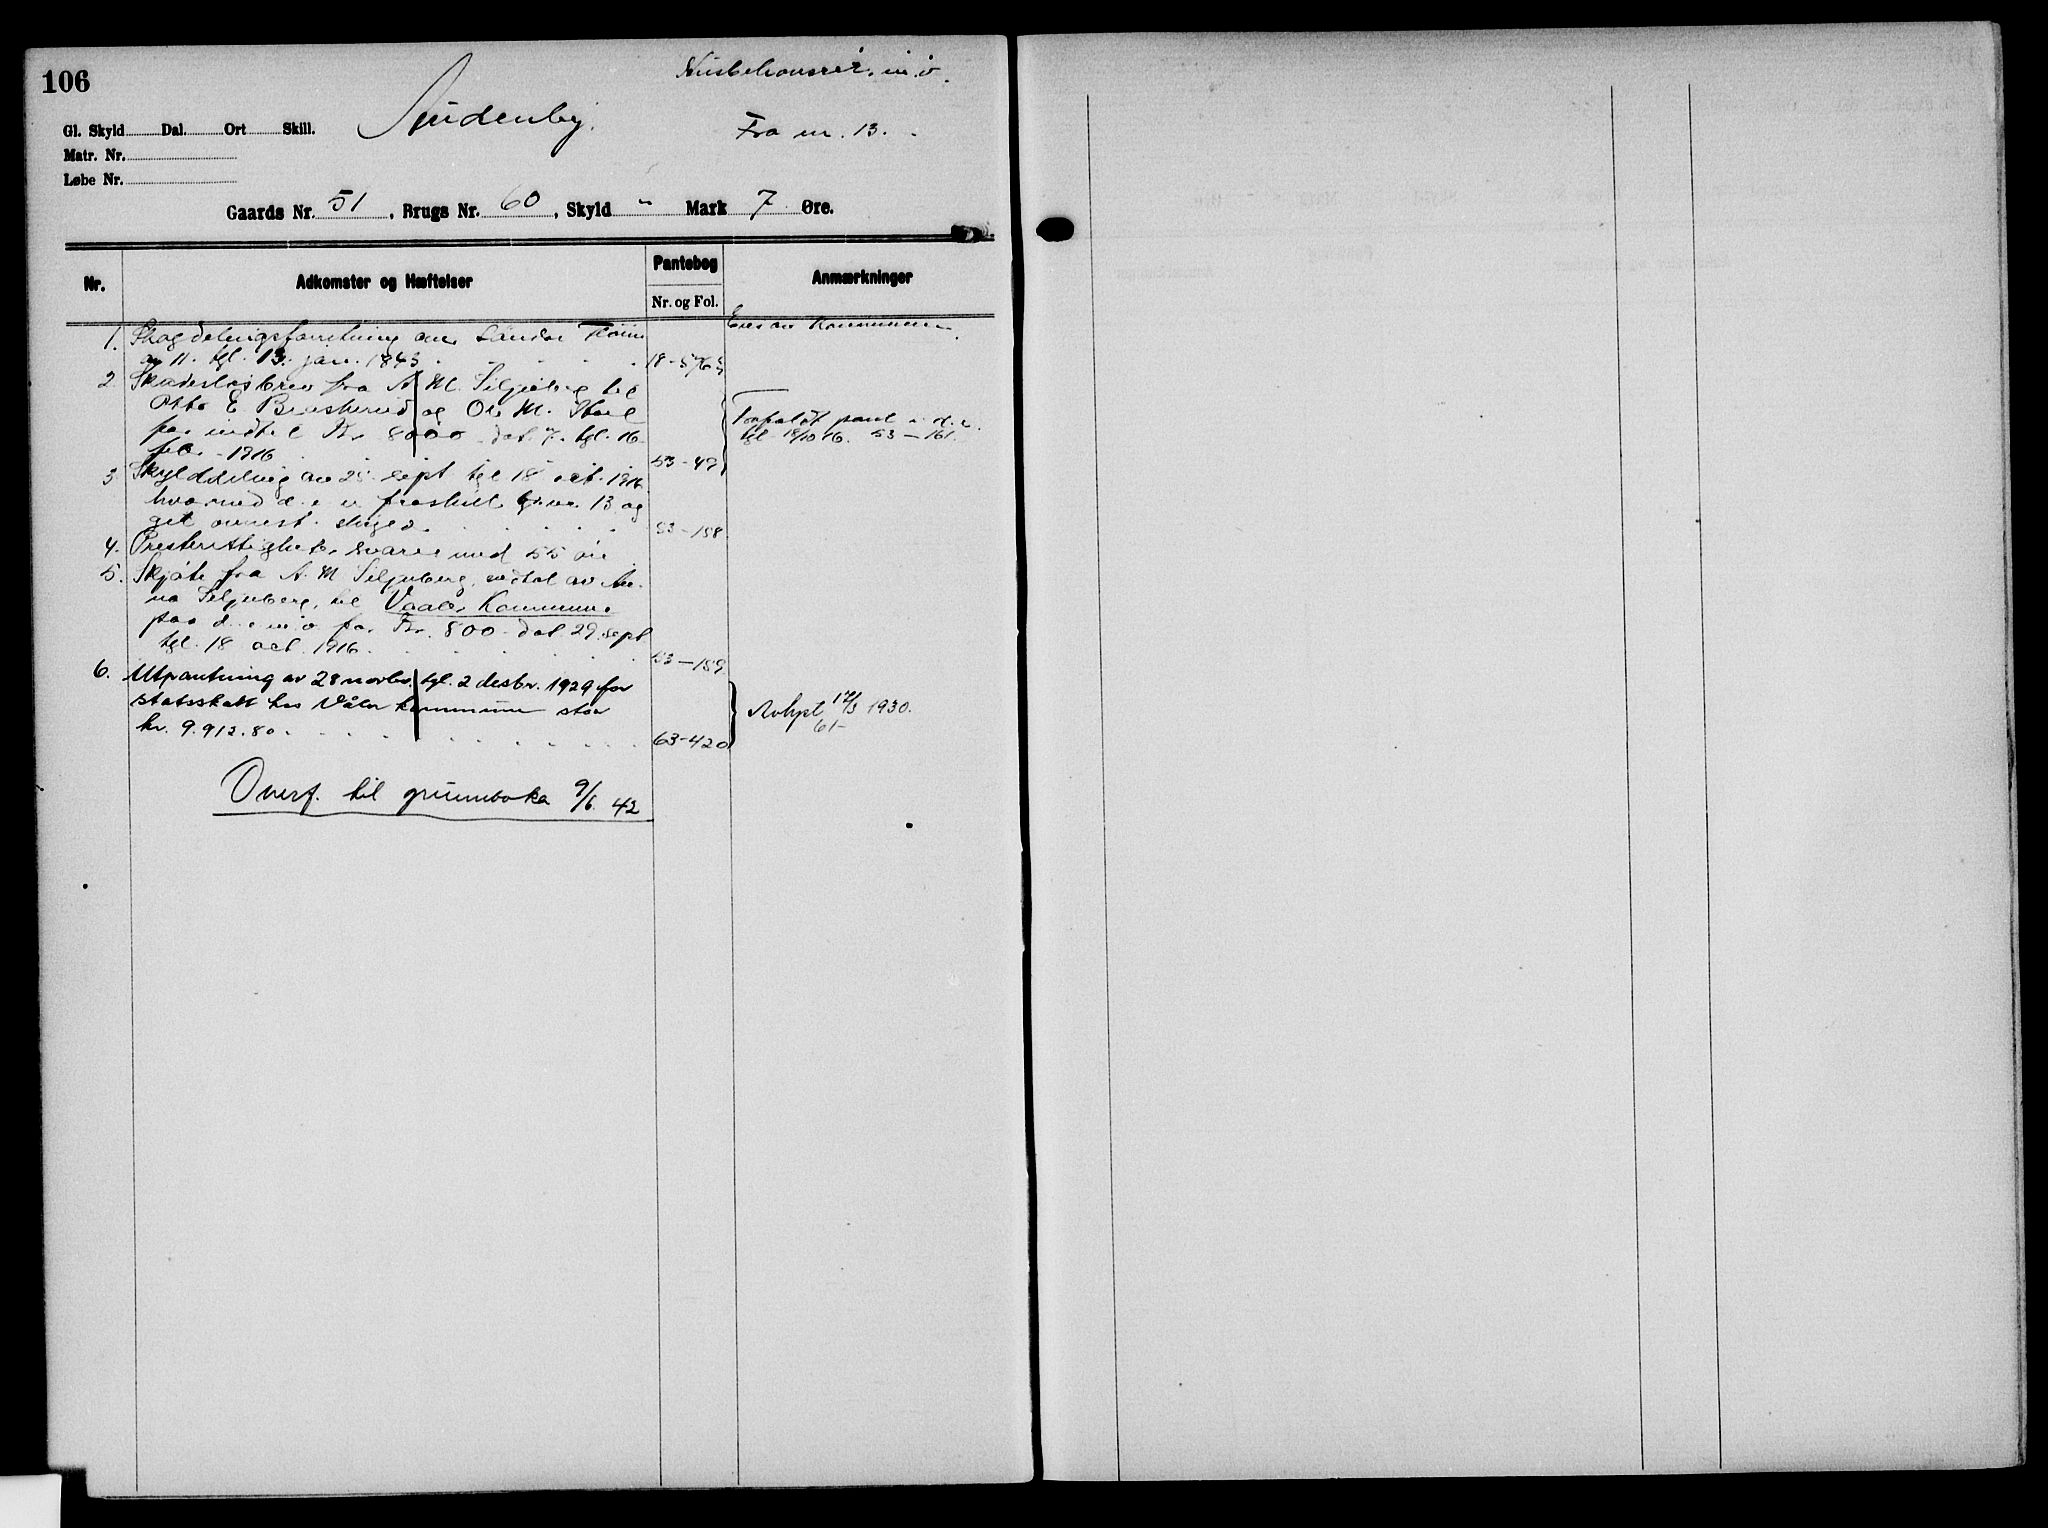 106
m. v.
Fra nr. 13.
Gl. Skyld Dal. Ort Skill.
Matr. Nr.
Løbe Nr.
Gaards Nr. 51, Brugs Nr. 60, Skyld " Mark 7 Øre.
Nr. Adkomster og Hæftelser Pantebog Anmærkninger
Nr. og Fol.
Eies av Kommunen.
1. Skogdelingsforretning
11. tgl. 13. jan. 1843 18-576
2. Skadesløsbrev fra A. M. Siljuberg til
Otto E. Braskerud og Ole M.
for indtil Kr. 8000 dat. 7. tgl. 16
febr. 1916 53-49
Frafaldt pant i d. e.
tgl. 18/10 16. 53-161
3. Skylddeling av 25. sept tgl 18 oct. 1916
hvorved d. e. er fraskilt br. nr. 13 og
53-158
4. Presterettighet svares med 55 øre
5. Skjøte fra A. M. Siljuberg, vedtat av An-
na Siljuberg, til Vaaler Kommune
paa d. e. m. v. for Kr. 800 dat. 29. sept
tgl. 18 oct. 1916. 53-159
6. Utpantning av 28 novbr. tgl. 2 desbr. 1929 for
statsskatt hos Våler kommune stor
kr. 9.912.80 63-420
Avlyst 17/3 1930.
61-
Overf. til grunnboka 9/6. 42